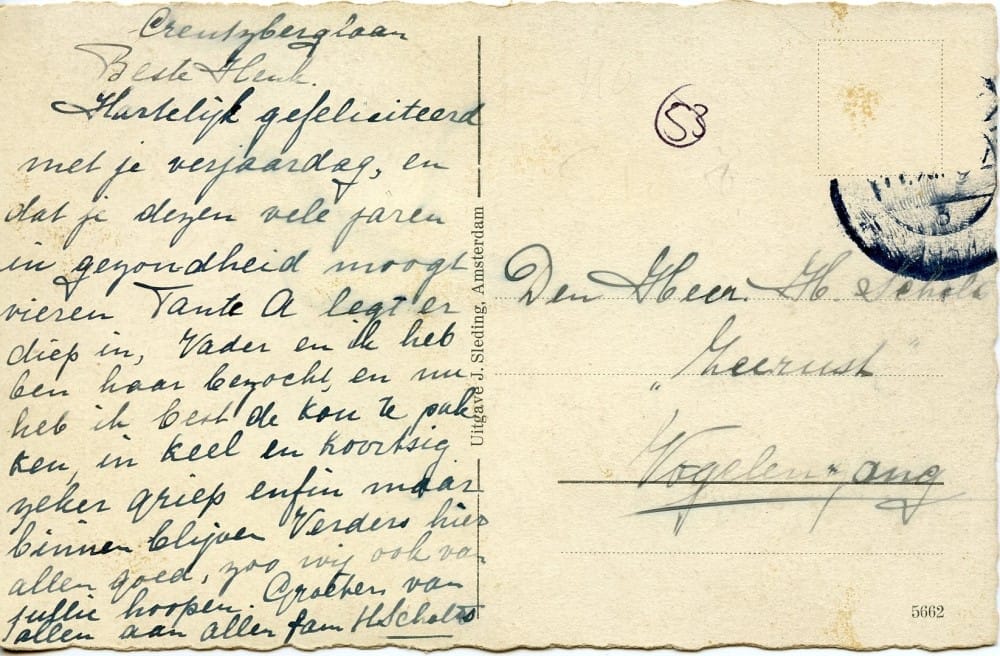 Creutzberglaan
Beste Henk.
Hartelijk gefeliciteerd
met je verjaardag, en
dat je dezen vele jaren
in gezondheid moogt
vieren Tante A legt er
diep in, Vader en ik heb
ben haar bezocht, en nu
heb ik best de kou te pak
ken, in keel en koortsig
zeker griep enfin maar
binnen blijven Verders hier
allen goed, zoo wij ook van
jullie hoopen. Groeten van
allen aan allen fam H Scholts
Uitgave J. Sleding, Amsterdam
53
Den Heer. H. Scholts
"Zeerust"
Vogelenzang
5662